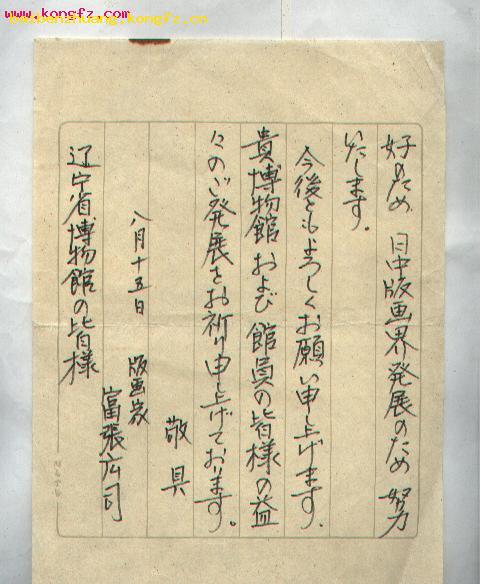 www.kongfz.com
beibenzhuang.kongfz.cn
好のため 日中版画界発展のため 努力
いたします。
今後ともよろしくお願い申上げます、
貴博物館および館員の皆様の益
々のご発展をお祈り申上げております。
敬具
八月十五日 版画家
富張広司
辽宁省博物館の皆様